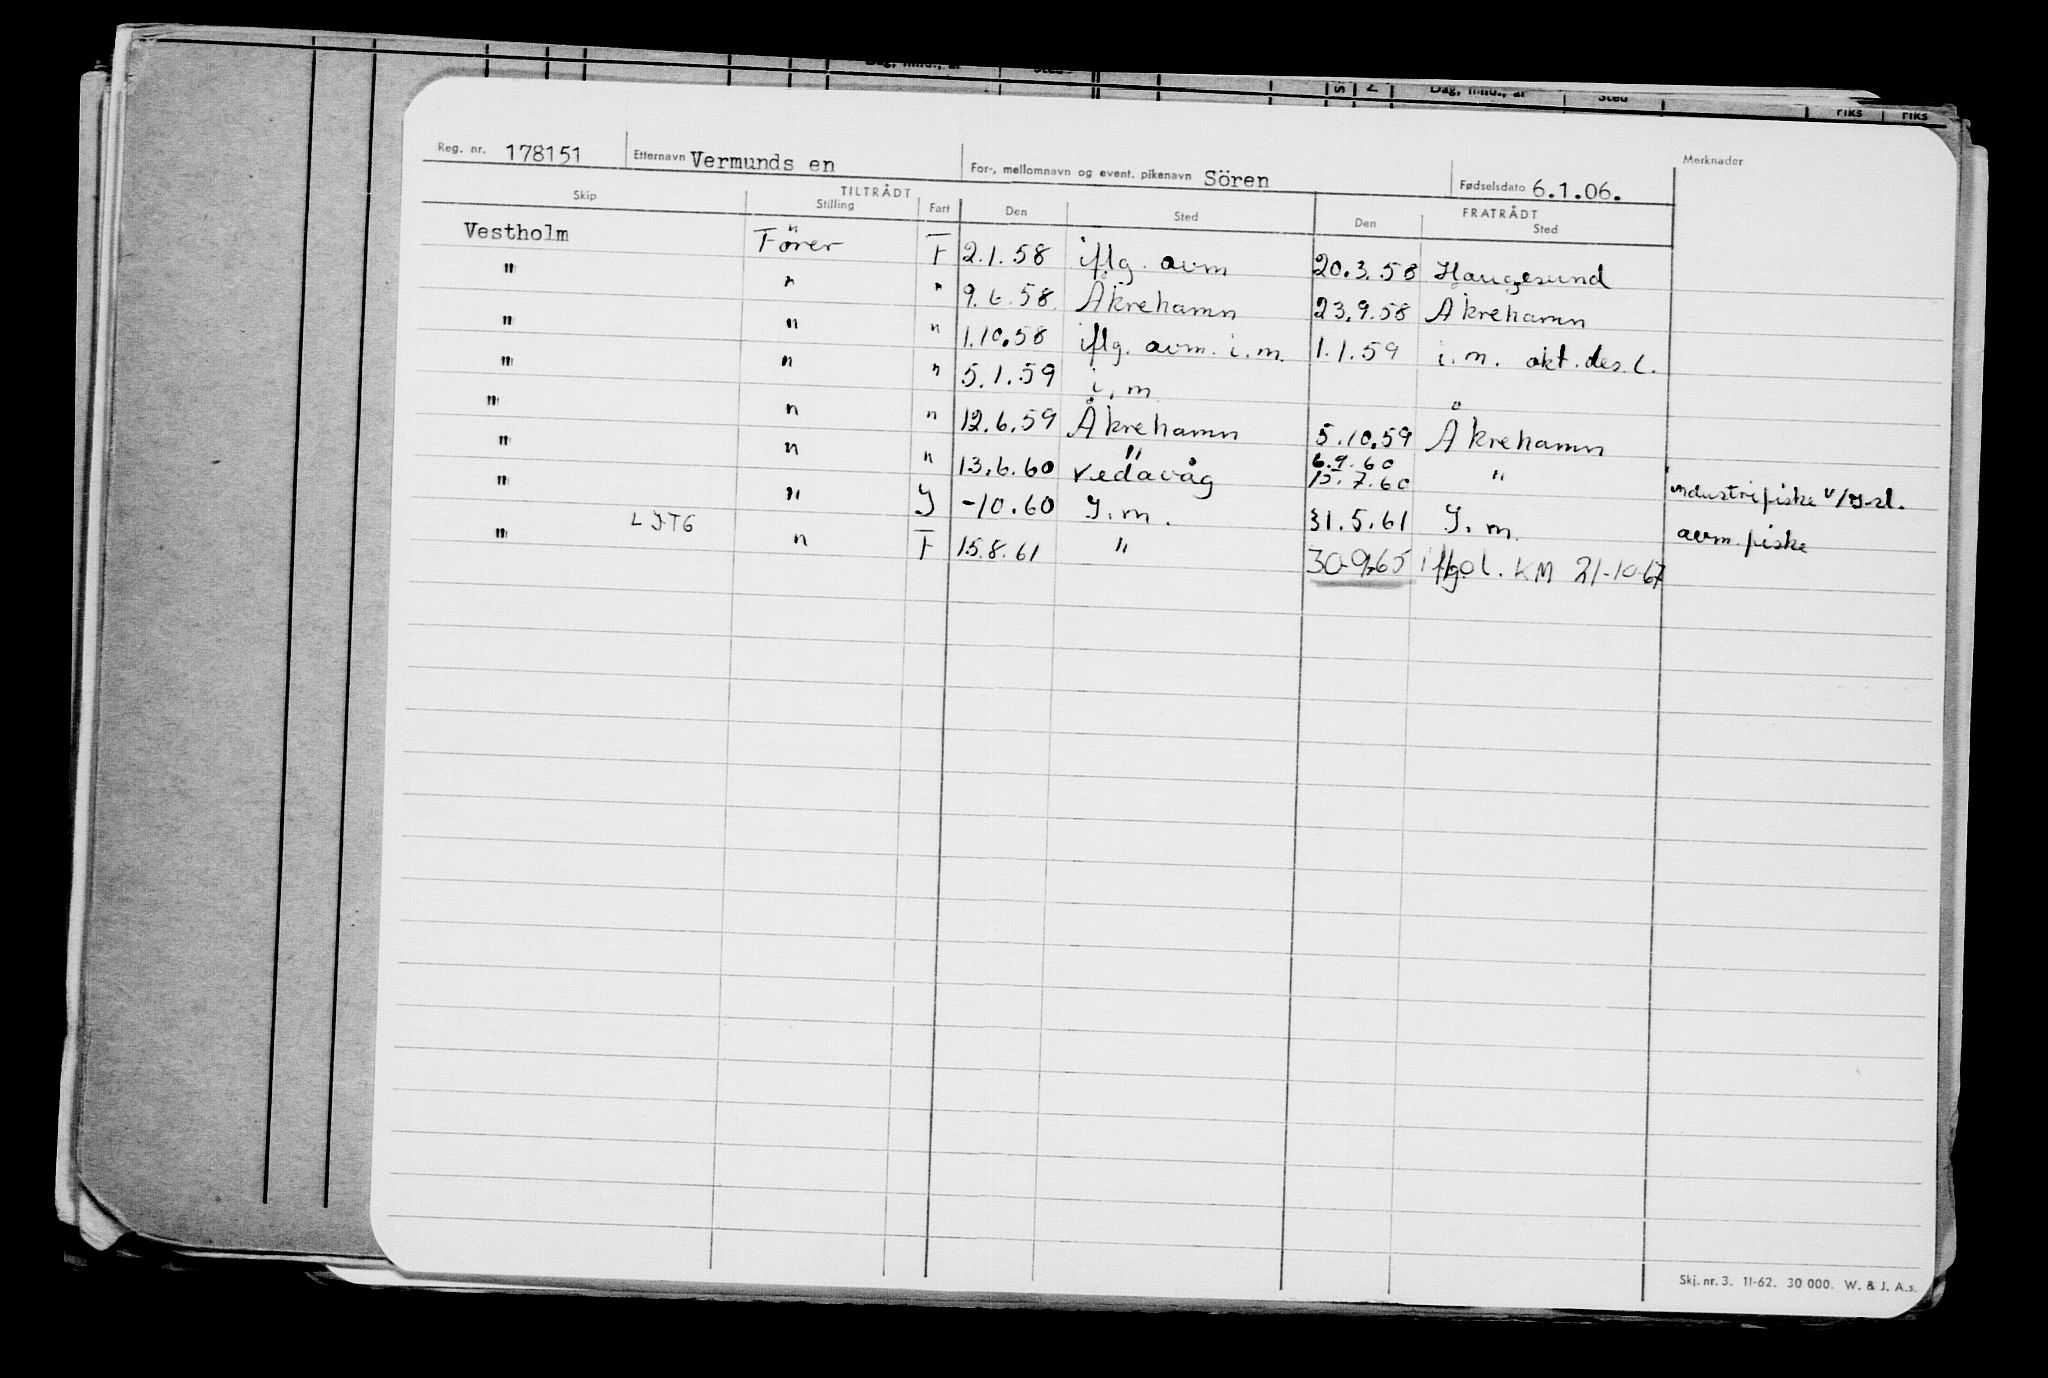 Reg. nr. 178151 Etternavn Vermunds en For-, mellomnavn og event. pikenavn Sören Fødselsdato 6.1.06. Merknader
TILTRÅDT FRATRÅDT
Skip Stilling Fart Den Sted Den Sted
Vestholm Förer F 2.1.58 iflg. avm 20.3.58 Haugesund
" " " 9.6.58 Åkrehamn 23.9.58 Åkrehamn
" " " 1.10.58 iflg. avm. i.m. 1.1.59 i.m. okt.des.l.
" " " 5.1.59 i.m
" " " 12.6.59 Åkrehamn 5.10.59 Åkrehamn
" 6.9.60
" " " 13.6.60 Vedavåg 15.7.60 " industrifiske
" " Y -10.60 Y.m. 31.5.61 Y.m. avm. fiske
LJTG
" " F 15.8.61 " 30-9-65 iflg ol. KM 21-10-67
Skj. nr. 3. 11-62. 30 000. W. & J. A.s.